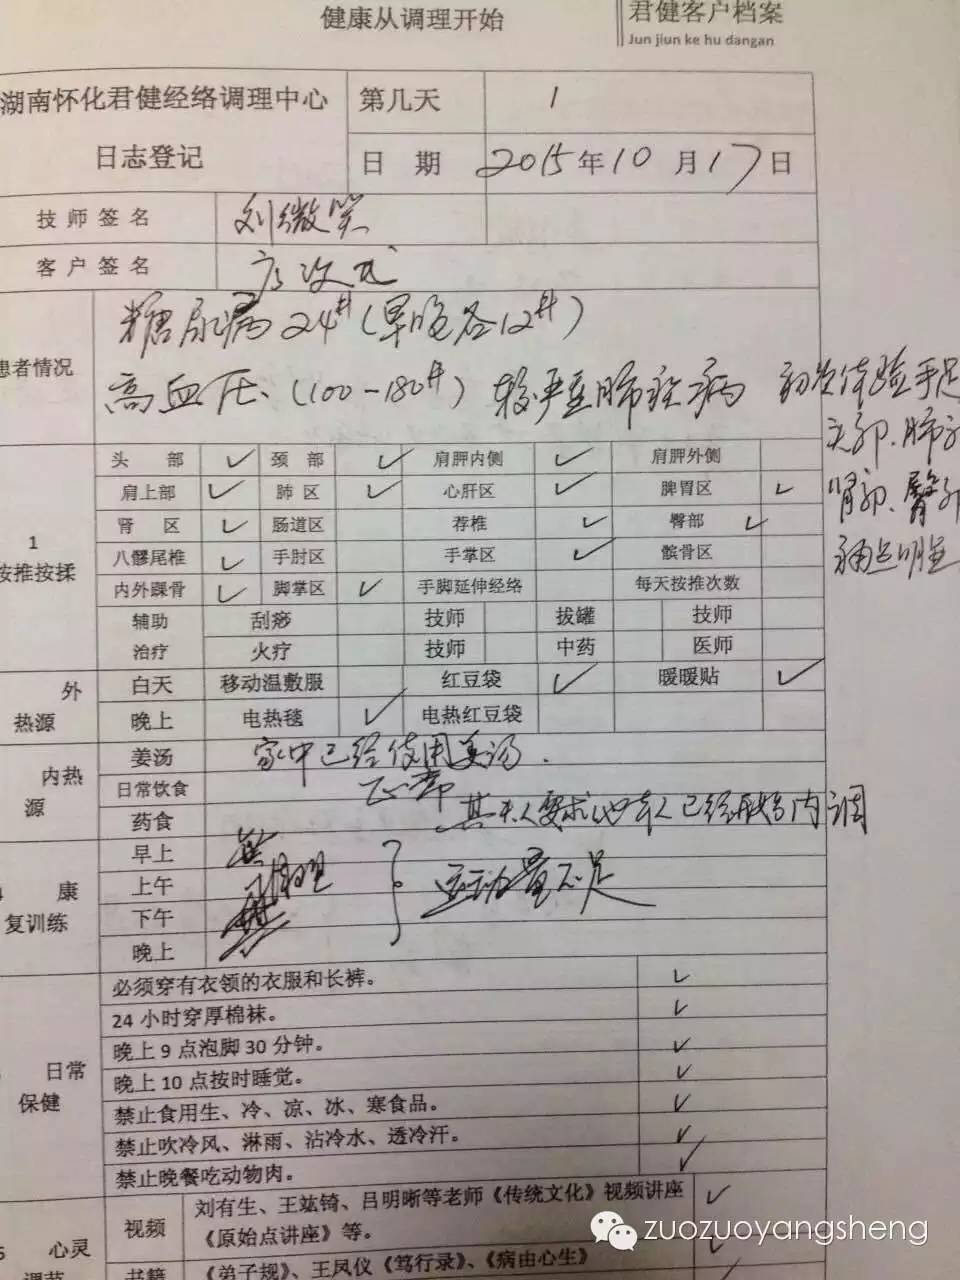 健康从调理开始
君健客户档案
Jun jiun ke hu dangan
湖南怀化君健经络调理中心
日志登记
第几天 1
日 期 2015年10月17日
技师签名 刘微笑
客户签名
患者情况
糖尿病24#(早晚各12#)
高血压(100-180#) 较严重肺 病 初次体验手足
头部、肺部
肾部、臀部
痛点明显
1
按推按揉
头 部 ✓ 颈 部 ✓ 肩胛内侧 ✓ 肩胛外侧
肩上部 ✓ 肺 区 ✓ 心肝区 ✓ 脾胃区 ✓
肾 区 ✓ 肠道区 荐椎 ✓ 臀部 ✓
八髎尾椎 ✓ 手肘区 手掌区 ✓ 髌骨区
内外踝骨 ✓ 脚掌区 ✓ 手脚延伸经络 每天按推次数
辅助 刮痧 技师 拔罐 技师
治疗 火疗 技师 中药 医师
外热源
白天 移动温敷服 红豆袋 ✓ 暖暖贴 ✓
晚上 电热毯 ✓ 电热红豆袋
内热源
姜汤 家中已经使用姜汤.
日常饮食 正常
药食 其夫人要求他本人已经开始内调
4 康复训练
早上
上午 运动量不足
下午
晚上
日常保健
必须穿有衣领的衣服和长裤。 ✓
24 小时穿厚棉袜。 ✓
晚上 9 点泡脚 30 分钟。 ✓
晚上 10 点按时睡觉。 ✓
禁止食用生、冷、凉、冰、寒食品。 ✓
禁止吹冷风、淋雨、沾冷水、透冷汗。 ✓
禁止晚餐吃动物肉。 ✓
心灵调节
视频 刘有生、王竑锜、吕明晰等老师《传统文化》视频讲座 ✓
《原始点讲座》等。
书籍 《弟子规》、王凤仪《笃行录》、《病由心生》 ✓
zuozuoyangsheng